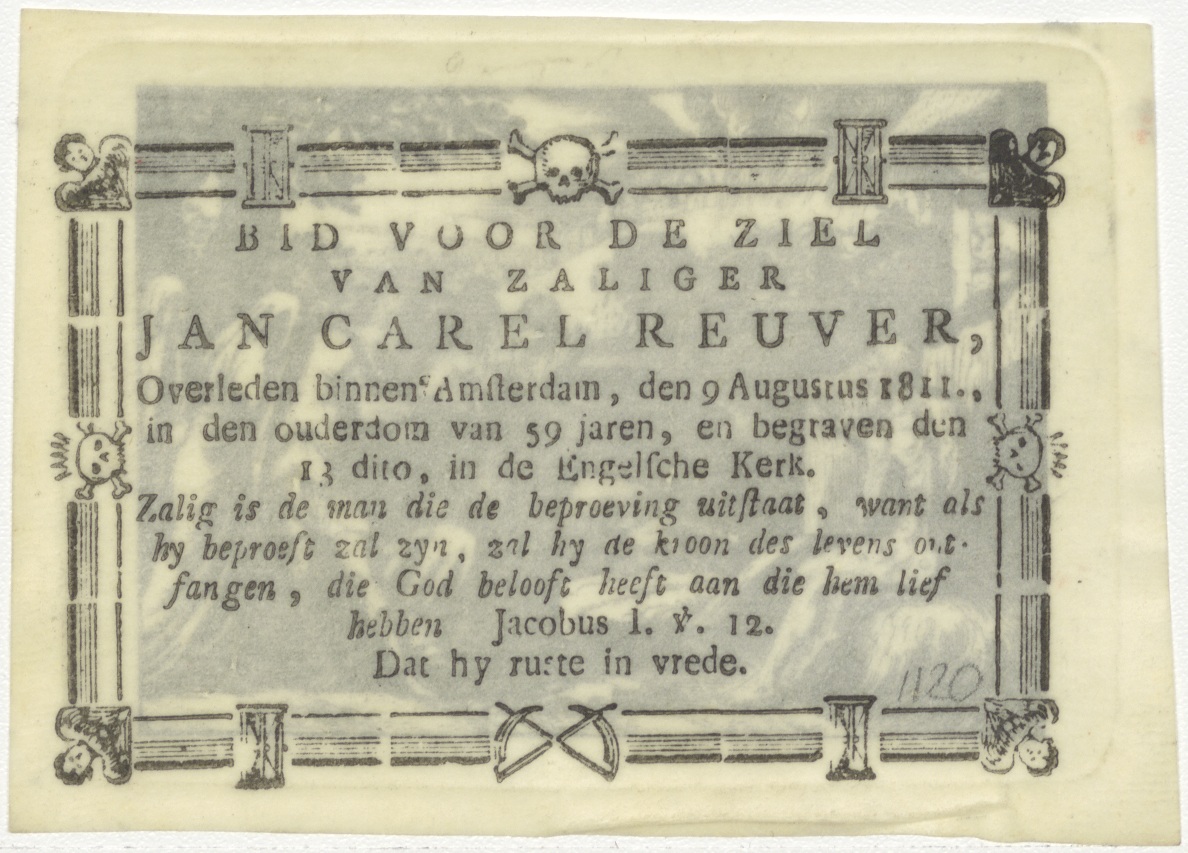 BID VOOR DE ZIEL
VAN ZALIGER
JAN CAREL REUVER,
Overleden binnen Amſterdam, den 9 Augustus 1811.,
in den ouderdom van 59 jaren, en begraven den
13 dito, in de Engelſche Kerk.
Zalig is de man die de beproeving uitſtaat, want als
hy beproeft zal zyn, zal hy de kroon des levens ont-
fangen, die God belooft heeft aan die hem lief
hebben Jacobus 1. ℣. 12.
Dat hy ruste in vrede.
1120